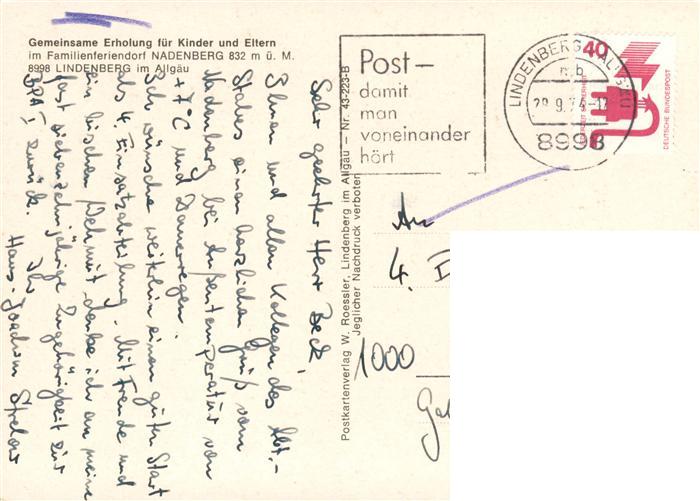 Gemeinsame Erholung für Kinder und Eltern
im Familienferiendorf NADENBERG 832 m ü. M.
8998 LINDENBERG im Allgäu
Post –
damit
man
voneinander
hört
LINDENBERG, ALLGÄU
mb
28.9.74-12
8998
40
DEUTSCHE BUNDESPOST
Sehr geehrter Herr Beck,
Ihnen und allen Kollegen des Abt.-
Stabes einen herzlichen Gruß vom
Nadenberg bei Außentemperatur von
+7°C und Dauerregen.
Ich wünsche weiterhin einen guten Start
als 4. Einsatzabteilung. Mit Freude und
ein bischen Wehmut denke ich an meine
fast siebenzehnjährige Zugehörigkeit zur
BPA I zurück. Ihr
Hans-Joachim
Postkartenverlag W. Roessler, Lindenberg im Allgäu – Nr. 43-223-B
Jeglicher Nachdruck verboten
An
4.
1000